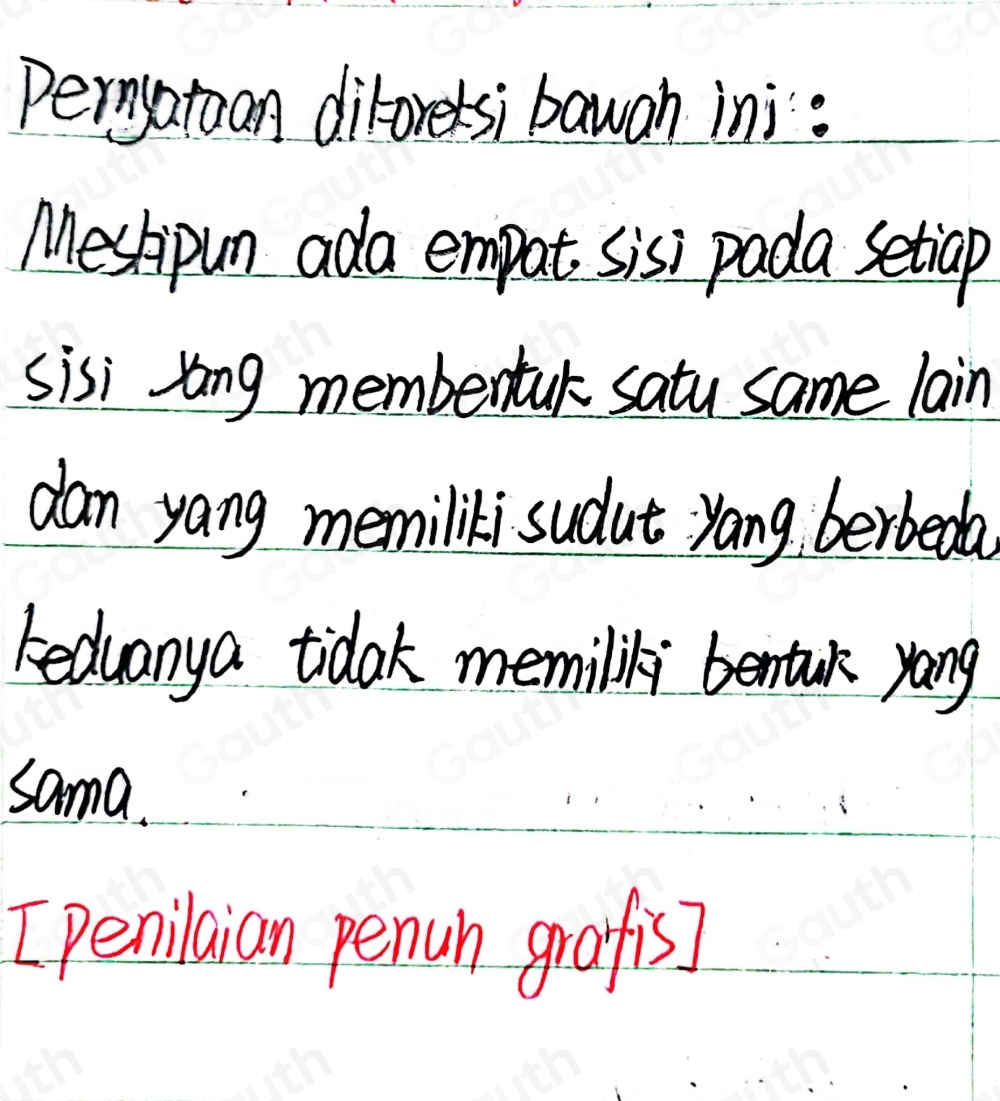 Pernyataan dikoreksi bawah ini :
Meskipun ada empat sisi pada setiap
sisi yang membentuk satu same lain
dan yang memiliki sudut yang berbeda,
keduanya tidak memiliki bentuk yang
sama.
[Penilaian penuh grafis]